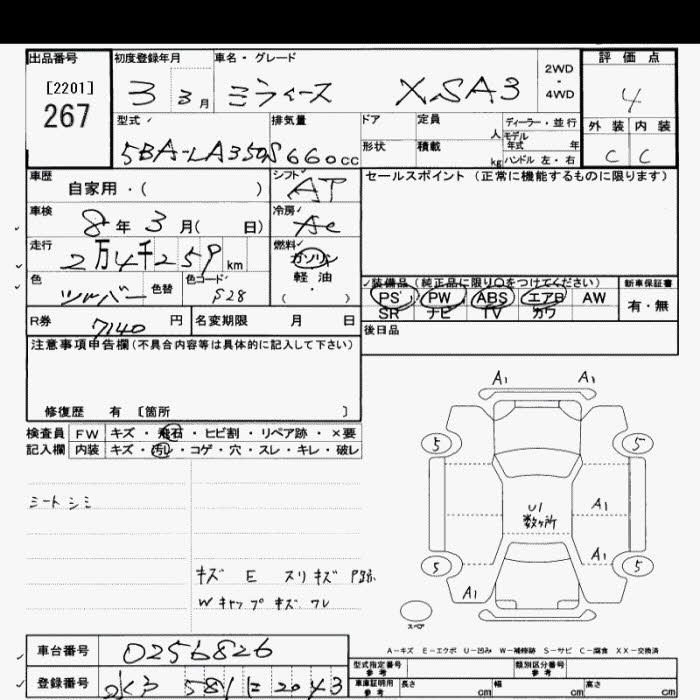 出品番号 初度登録年月 車名・グレード 評価点
[2201] 2WD・4WD
267 3 3月 ミライース XSA3 4
外装 内装
C C
型式 排気量 ドア 定員 人 ディーラー・並行
モデル年式 年
5BA-LA350S 660cc 形状 積載 kg ハンドル 左・右
車歴 シフト セールスポイント(正常に機能するものに限ります)
自家用・( ) AT
車検 冷房
8年3月( 日) AC
走行 燃料
2万4千259km ガソリン
軽・油
( )
色 色替 色コード
シルバー S28
装備品(純正品に限り○をつけてください) 新車保証書
PS PW ABS エアB AW 有・無
SR ナビ TV カワ
R券 7140円 名変期限 月 日 後日品
注意事項申告欄(不具合内容等は具体的に記入して下さい)
修復歴 有 〔箇所 〕
検査員 FW キズ・飛石・ヒビ割・リペア跡・×要
記入欄 内装 キズ・汚レ・コゲ・穴・スレ・キレ・破レ
シートシミ
キズ E スリキズ P跡
Wキャップキズ フレ
A1 A1
5 5
U1 数ヶ所 A1
A1
5 5
A1
スペア
A-キズ E-エクボ U-凹み W-補修跡 S-サビ C-腐食 XX-交換済
車台番号 0256826
型式指定番号 参考 類別区分番号 参考
登録番号 581 に 2043
車庫証明用 参考 長さ cm 幅 cm 高さ cm